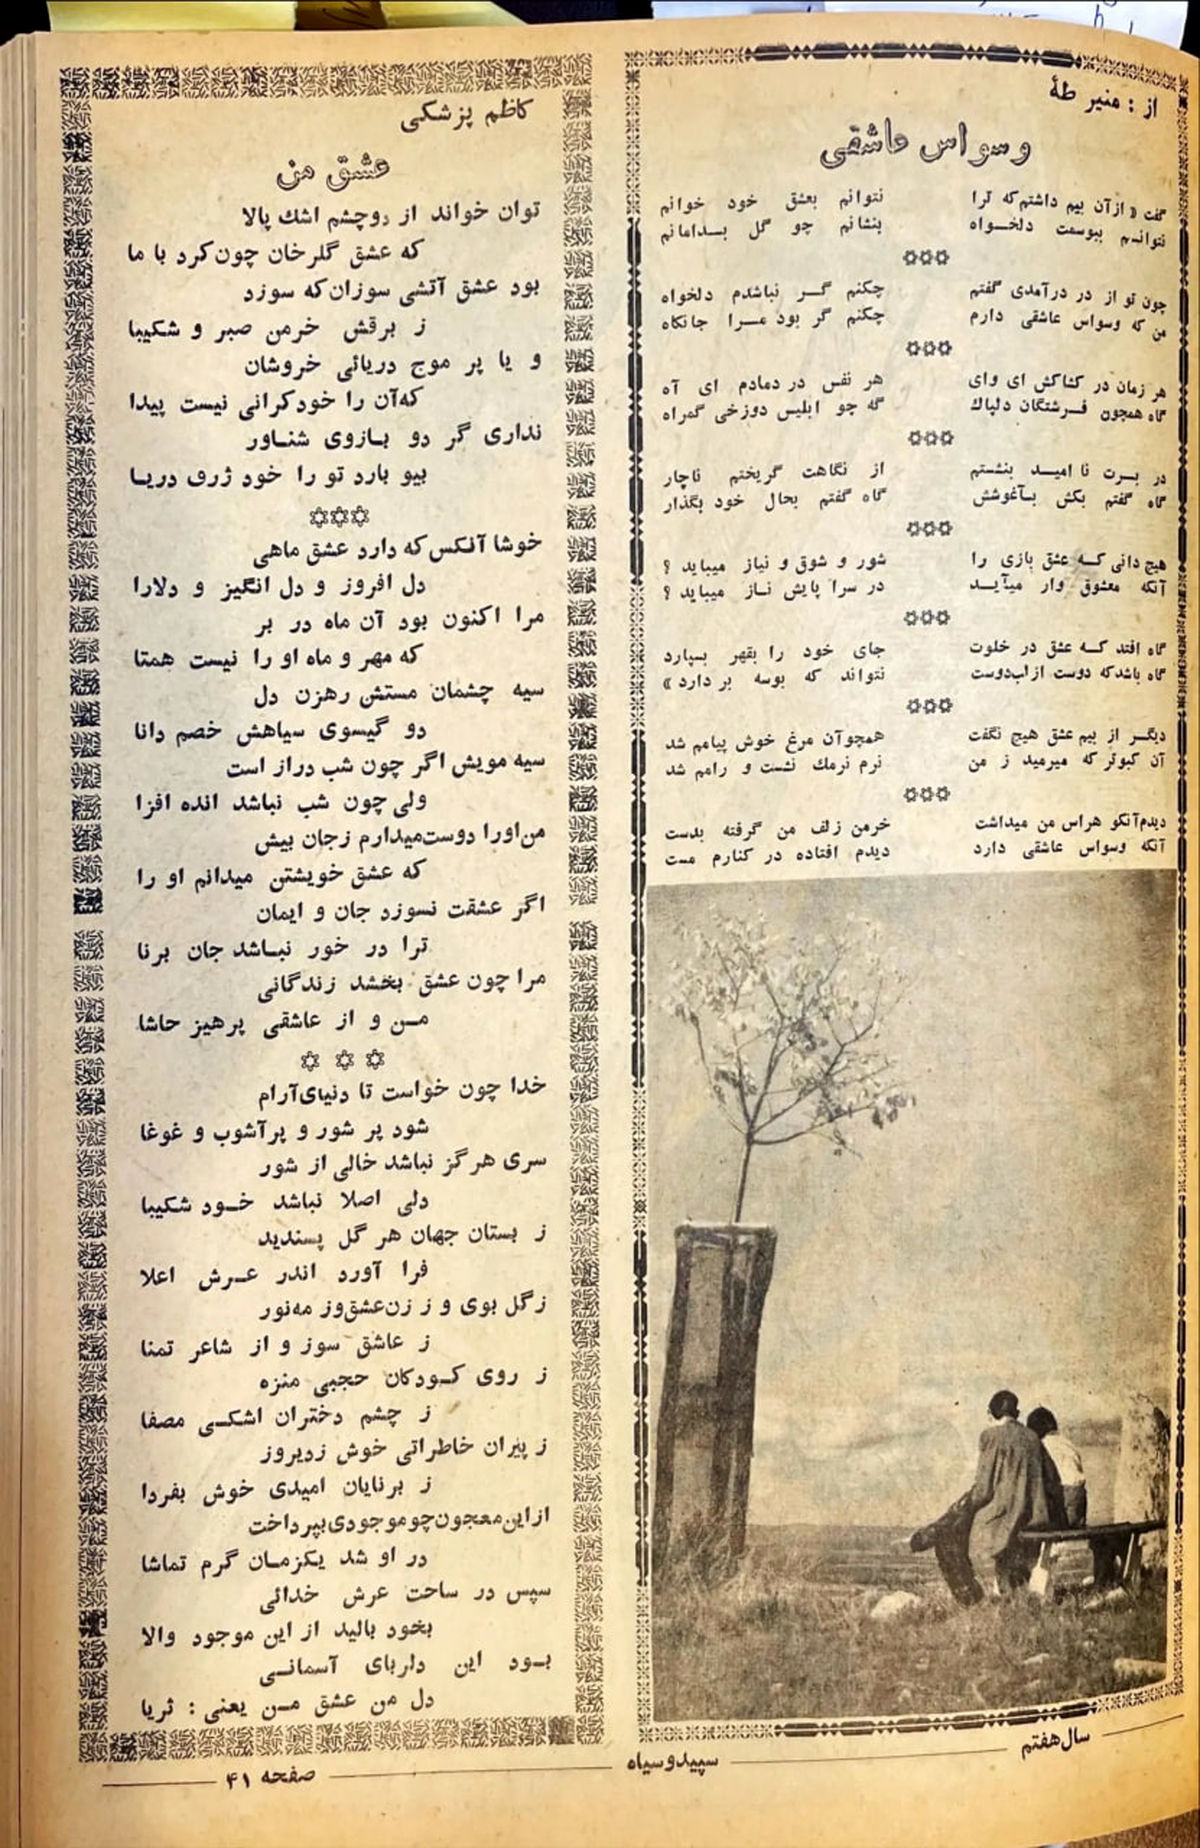 از : منیر طهٔ
وسواس عاشقی
گفت « ازآن بیم داشتم‌که ترا نتوانم بعشق خود خوانم
نتوانـم ببوسمت دلخـواه بنشانم چو گل بـدامانم
✡✡✡
چون تو از در درآمدی گفتم چکنم گـر نباشدم دلخواه
من که وسواس عاشقی دارم چکنم گر بود مـرا جانکاه
✡✡✡
هر زمان در کشاکش ای وای هر نفس در دمادم ای آه
گاه همچون فـرشتگان دلپاك گه چو ابلیس دوزخی گمراه
✡✡✡
در بـرت نا امیـد بنشستم از نگاهت گریختم ناچار
گاه گفتم بکش بـآغوشش گاه گفتم بحال خود بگذار
✡✡✡
هیچ دانی کـه عشق بازی را شور و شوق و نیاز میباید ؟
آنکه معشوق وار میآیـد در سرا پایش نـاز میباید ؟
✡✡✡
گاه افتد کـه عشق در خلوت جای خود را بقهر بسپارد
گاه باشدکه دوست ازلب‌دوست نتواند که بوسه بر دارد »
✡✡✡
دیگـر از بیم عشق هیچ نگفت همچوآن مرغ خوش پیامم شد
آن کبوتر که میرمید ز من نرم نرمك نشست و رامم شد
✡✡✡
دیدم‌آنکو هراس من میداشت خرمن زلف من گرفته بدست
آنکه وسواس عاشقی دارد دیدم افتاده در کنارم مست
کاظم پزشکی
عشق من
توان خواند از دوچشم اشك پالا
که عشق گلرخان چون‌کرد با ما
بود عشق آتشی سوزان‌که سوزد
ز برقش خرمن صبر و شکیبا
و یا پر موج دریائی خروشان
که‌آن را خودکرانی نیست پیدا
نداری گر دو بـازوی شنـاور
بیو بارد تو را خود ژرف دریـا
✡✡✡
خوشا آنکس‌که دارد عشق ماهی
دل افروز و دل انگیز و دلارا
مرا اکنون بود آن ماه در بر
که مهر و ماه او را نیست همتا
سیه چشمان مستش رهزن دل
دو گیسوی سیاهش خصم دانا
سیه مویش اگر چون شب دراز است
ولی چون شب نباشد انده افزا
من‌اورا دوست‌میدارم زجان بیش
که عشق خویشتن میدانم او را
اگر عشقت نسوزد جان و ایمان
ترا در خور نبـاشد جان برنا
مرا چون عشق بخشد زندگانی
مـن و از عاشقی پرهیز حاشا
✡ ✡ ✡
خدا چون خواست تا دنیای‌آرام
شود پر شور و پرآشوب و غوغا
سری هرگز نباشد خالی از شور
دلی اصلا نباشد خـود شکیبا
ز بستان جهان هر گل پسندید
فرا آورد اندر عـرش اعلا
زگل بوی و ز زن‌عشق‌وز مه‌نور
ز عاشق سوز و از شاعر تمنا
ز روی کـودکان حجبی منزه
ز چشم دختران اشکـی مصفا
ز پیران خاطراتی خوش زدیروز
ز برنایان امیدی خوش بفردا
ازاین‌معجون‌چوموجودی‌بپرداخت
در او شد یکزمـان گرم تماشا
سپس در ساحت عرش خدائی
بخود بالید از این موجود والا
بـود این دلربای آسمانـی
دل من عشق مـن یعنی : ثریا
سال‌هفتم
سپیدوسیاه
صفحه ۴۱